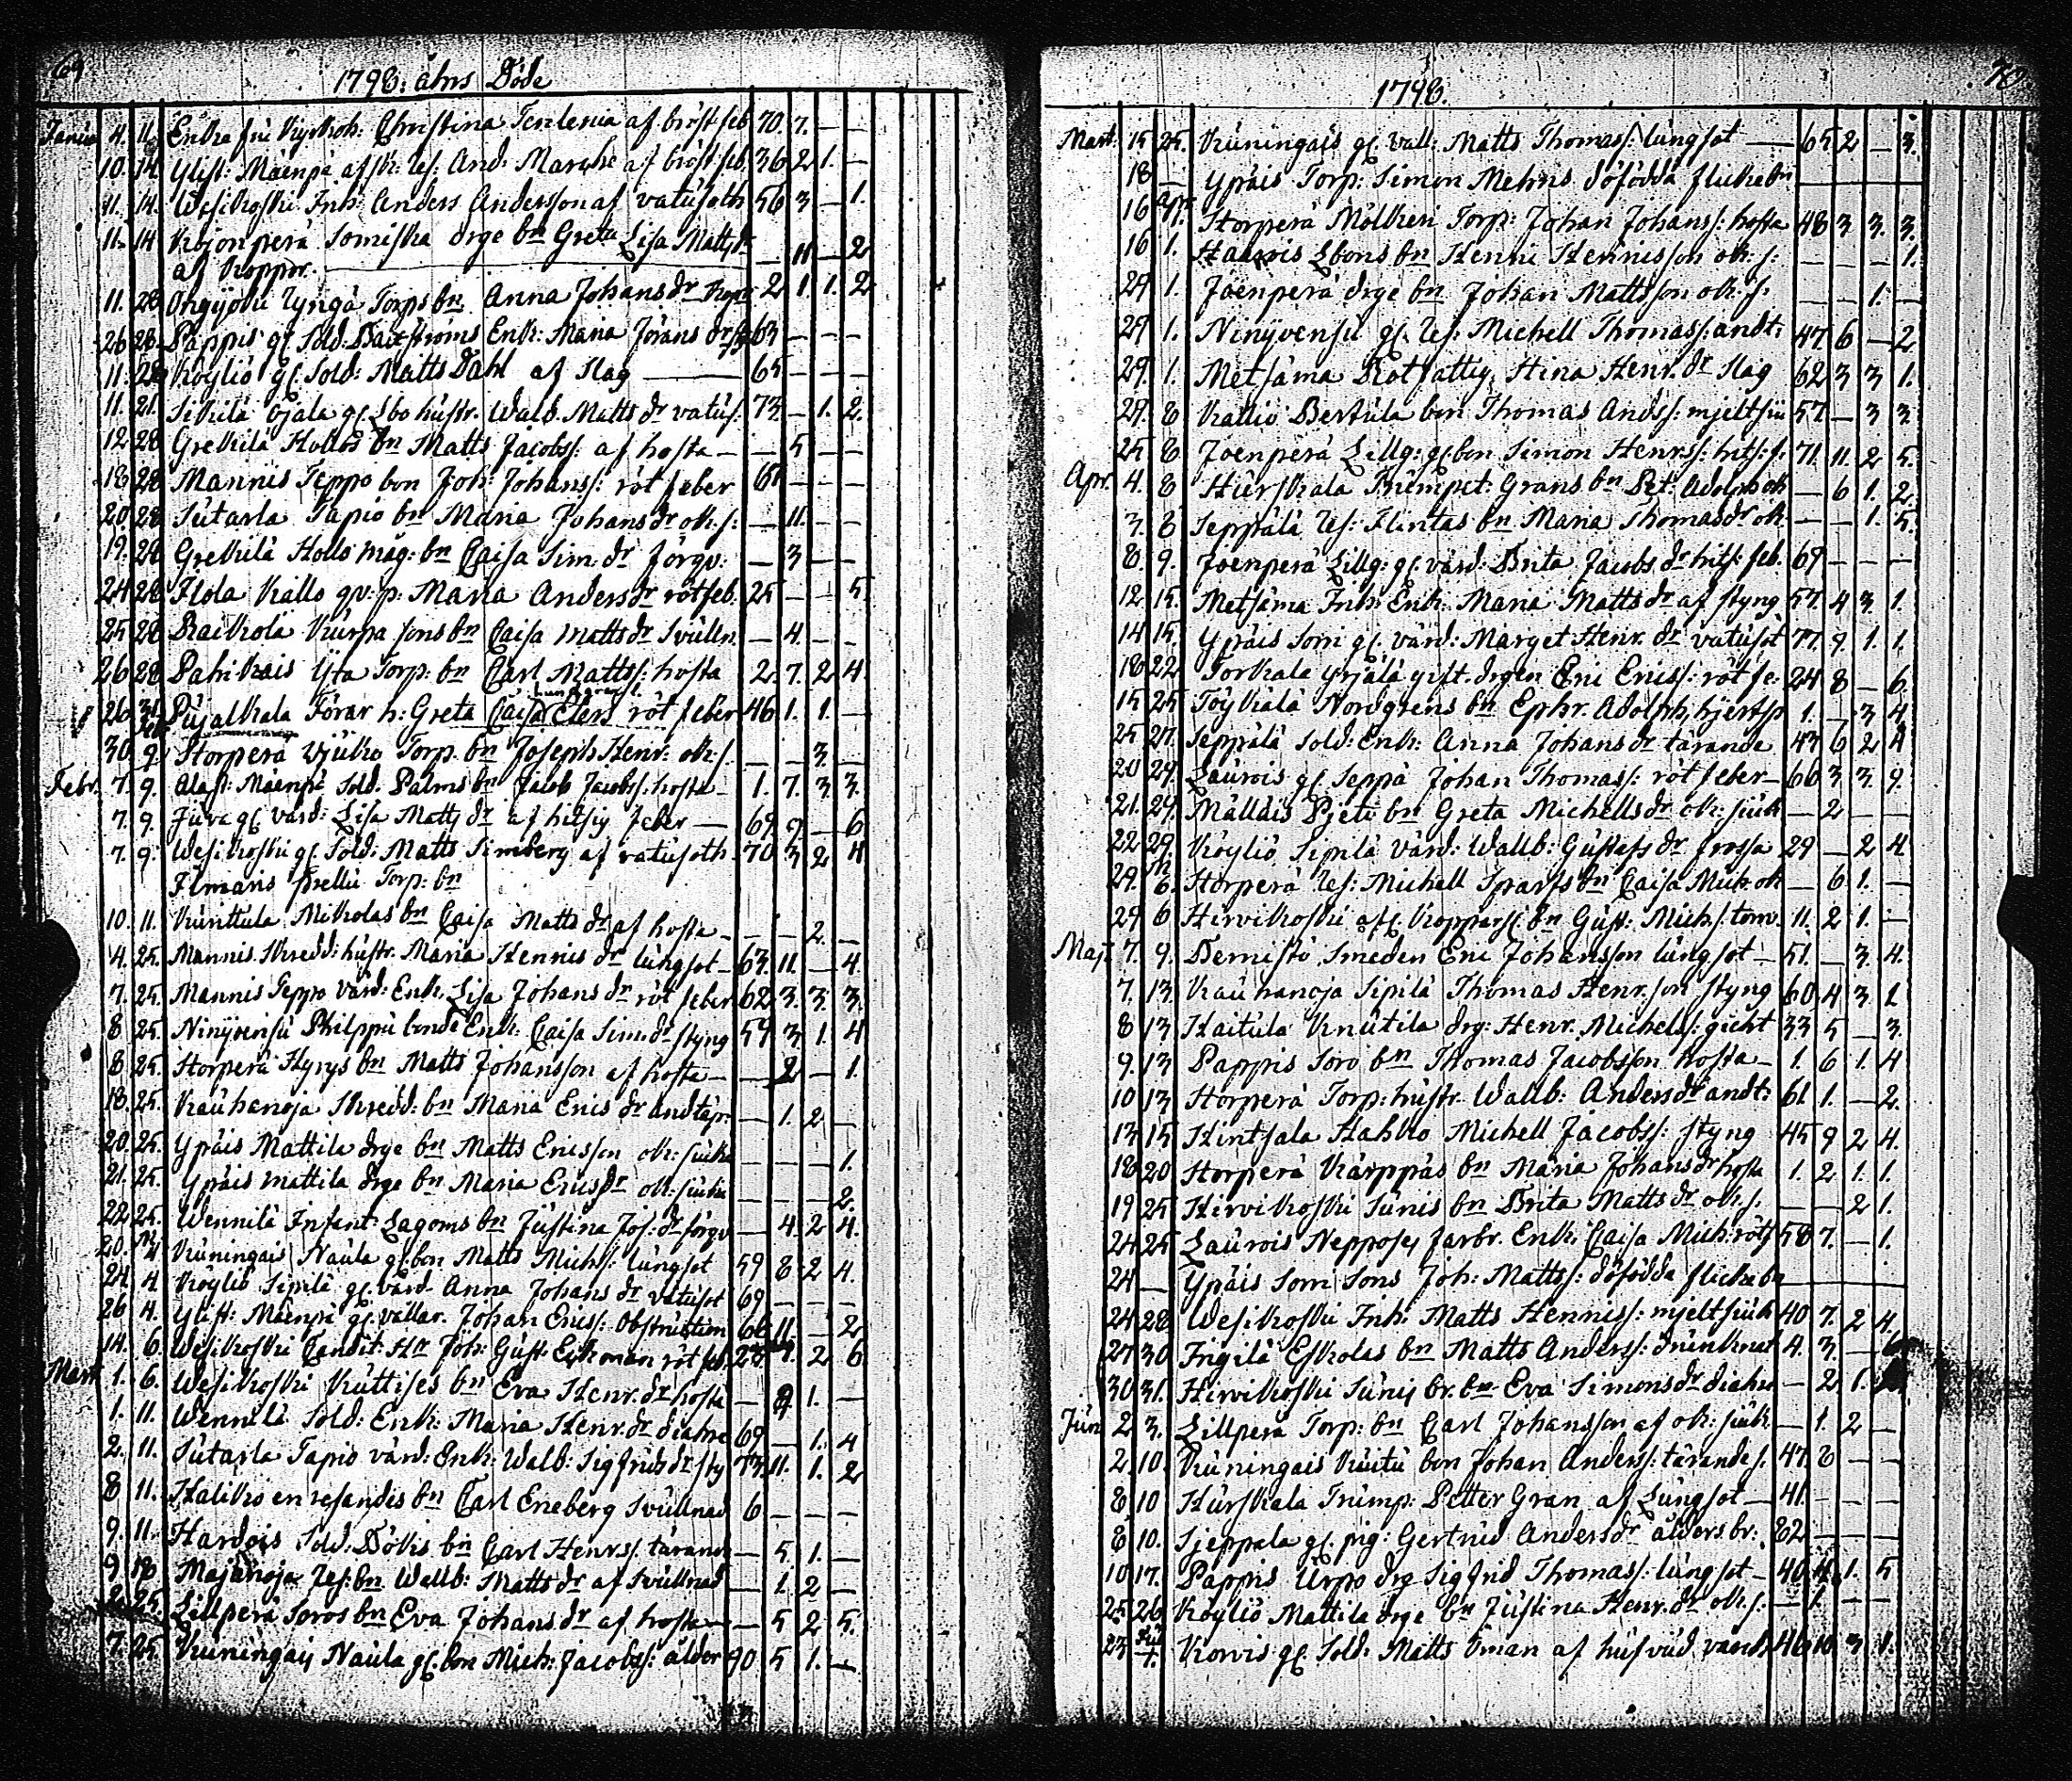 69
1798: åhrs Döde
Janua 4. 11. Enkefru Kyrkoh: Christina Terlenia af bröst feb 70. 7. — —
10. 14. Ylist: Mäenpä afsk: Res: And: Marcke af bröst feb. 36 2 1. —
11. 14. Wesikoski Inh: Anders Andersson af vatusoth 56 3 — 1.
11. 14 Kojonperä Somiska drge bn Greta Lisa Mattsdr — 11 — 2
af Koppor.
11. 28 Ongijoki Rynga Torps bn Anna Johansdr kopp 2 1. 1. 2
26 28. Pappis gl. Sold: Enk: Maria Jöransdr 63 — — —
11. 28 Köyliö gl. Sold: Matts Dahl af Slag — 65 — — —
11. 21. Sikilä Ojala gl. Sbo hustr. Walb. Mattsdr vatus: 73. — 1. 2.
12. 28 Grekilä Hollos bn Matts Jacobs: af hosta — — 5 — —
18 28 Mannis Teppo bon Joh: Johans: röt feber 61 — — —
20. 28 Sutarla Tapio bn Maria Johansdr ok: s: — 11. — —
19. 28 Grekilä Hollo måg: bn Caisa Sim: dr förgv: — 3 — —
24 28 Ilola Kallo qv: p: Maria Andersdr rötfeb. 25 — — 5
25 28 Raikola Kurpa sons bn Caisa Mattsdr Svulln. — 4. — —
26 28 Pahikais Yta Torp: bn Carl Matts: hosta 2. 7. 2 4.
26. 31. Pujalkala Förar h: Greta Caisa Elers röt feber 46 1. 1. —
30. 9. Storperä Vjuko Torp. bn Joseph Henr: ok: s: — — 3. —
Febr. 7. 9. Alast: Mäenpä Sold. Palms bn Jacob Jacobs: hosta — 1. 7. 3. 3.
7. 9. Juva gl. värd: Lisa Mattsdr af hitsig feber — 69. 9 — 6
7. 9. Wesikoski gl. Sold: Matts Simberg af vatusoth. 70 3 2 4
Ilmaris Prelli Torp: bn
10. 11. Kurittula Nikolas bn Caisa Mattsdr af hosta — — — 2. —
4. 25. Mannis Skredd: hustr. Maria Hennisdr lungsot — 63. 11. — 4.
7. 25. Mannis Teppo värd: Enk. Lisa Johansdr röt feber 62 3. 3. 3.
8 25. Ninyvensu Philppu bonde Enk: Caisa Simdr styng 59 3. 1. 4
8 25. Storperä Hyrys bn Matts Johansson af hosta — — 2 — 1.
18. 25. Kauhanoja Skredd: bn Maria Ericsdr andtäp: — 1. 2 —
20. 25. Ypäis Mattila drge bn Matts Ericsson ok: siuka — — — 1.
21. 25. Ypäis Mattila drge bn Maria Ericsdr ok: siuka — — — 2.
22 25. Wennilä Infant: Lagoms bn Justina Jos: dr förgv — 4 2 4.
20. Kuningais Naula gl bon Matts Michs: lungsot 59 8 2 4.
24. 4. Köyliö Sipilä gl. värd. Anna Johansdr vatusot 69 — — —
26 4. Ylist: Mäenpä gl. vallar. Johan Erics: Obstruction 66 11 — 2
14. 6. Wesikoski Candit: Hr Joh: Gust: Eckman röt feb. 2 6
Mart. 1. 6. Wesikoski Kuttises bn Eva Henr. dr hosta — 9 1. —
1. 11. Wennilä Sold: Enk: Maria Henr. dr diahre 69 — 1. 4
2. 11. Sutarla Tapio värd: Enk: Walb: Sigfridsdr sty 73. 11. 1. 2
8 11. Kaliko en resandes bn Carl Eneberg Svullnad 6 — — —
9. 11. Hardois Sold: Dökis bn Carl Henrs: tärande — 5 1. —
9. 18 Majanoja Res: bn Wallb: Mattsdr af Svullnad — 1 2 —
2. 25. Lillperä Soros bn Eva Johansdr af hosta — — 5 2 5.
7. 25. Kuningais Naula gl. bon Mich: Jacobs: ålder 90 5 1. —
70
1798.
Mart: 15 25. Kuningais gl. vall: Matts Thomass: lungsot — 65 2 — 3.
18 — Ypäis Torp: Simon Mehns döfödda flickebn
16 Apr. Storperä Mölkeri Torp: Johan Johans: hosta 48 3 3. 3.
16 1. Haavois Sbons bn Henric Henricsson ok: s: — — — 1.
29 1. Joenperä drge bn Johan Mattsson ok: s. — — 1. —
29 1. Ninyvensu gl. Res: Michell Thomass: andt: 47. 6 — 2
29. 1. Metsäma Rotfattig Stina Henr. dr Slag 62 3 3 1.
29. 8 Kallio Bertula bon Thomas Ands: mjeltsiu 57. — 3 3.
25 8 Joenperä Lillg: gl. bon Simon Henrs: hits: f. 71. 11. 2 5.
Apr. 4. 8 Hurskala Trumpet: Grans bn Pet: Adolph ok — 6 1. 2.
3. 8 Seppälä Res: Flintas bn Maria Thomasdr ok. — — 1. 5.
8. 9. Joenperä Lillg: gl. värd: Brita Jacobsdr hits: feb. 69 — — —
12. 15. Metsäma Inh: Enk: Maria Mattsdr af styng 57. 4 3. 1.
14 15 Ypäis Somi gl. värd: Marget Henr. dr vatusot 77. 9. 1. 1.
18 22 Torkala Yrjälä gift. drgen Eric Erics: röt fe. 24 8 — 6.
15 25 Töykälä Nordgrens bn Ephr. Adolph, hjertsp 1. — 3 4
25 27. Seppälä Sold: Enk: Anna Johansdr tärande 43 6 2 4
20 29. Laurois gl. Seppä Johan Thomass: röt feber — 66 3 3. 9.
21. 29. Mälläis Pjeti bn Greta Michellsdr ok: siuk — 2 — —
22 29 Köyliö Sipilä värd: Wallb: Gustafsdr frossa 29 — 2 4.
29. 6. Storperä Res: Michell Sparfs bn Caisa Mich: ok — 6 1. —
29 6 Hirvikoski afl. Kopparsl. bn Gust: Michs: tom. 11. 2 1. —
Maj. 7. 9. Remistö Smeden Eric Johansson lungsot — 51. — 3. 4.
7. 13. Kauhanoja Sipilä Thomas Henrsson styng 60 4 3. 1
8 13 Haitula Knutila drg: Henr. Michels: gicht 33 5 — 3.
9. 13 Pappis Soro bn Thomas Jacobsson hosta — 1. 6 1. 4
10 13 Storperä Torp: hustr. Wallb: Andersdr andt: 61 1. — 2.
13 15 Hintsala Hahko Michell Jacobs: styng 45 9 2 4.
18 20 Storperä Kärppäs bn Maria Johansdr hosta 1. 2 1. 1.
19 25 Hirvikoski Sunis bn Brita Mattsdr ok: s. — — 2 1.
24 25 Laurois Nepposes farbr. Enk: Caisa Mich: rötf 58 7. — 1.
24 — Ypäis Somi Sons Joh: Matts: döfödda flickebn
24 28 Wesikoski Inh: Matts Hennis: mjeltsiuk 40 7. 2 4.
27 30 Ingilä Eskolas bn Matts Anders: drunknat 4. 3. — 6
30 31. Hirvikoski Sunis br. bn Eva Simonsdr diahre — 2 1.
Jun 2 3. Lillperä Torp: bn Carl Johansson af ok: siuk. — 1. 2 —
2. 10. Kuningais Kuitu bon Johan Anders: tärande s. 47. 8 — —
8 10 Hurskala Trump: Petter Gran af Lungsot — 41. — — —
8 10. Sjeppala gl. pig: Gertrud Andersdr ålders br: 82 — — —
10 17. Pappis Urpo drg Sigfrid Thomass: lungsot — 40. 4. 1. 5
25 26 Köyliö Mattila drge bn Justina Henr. dr ok: s: — 1. — —
23 Korvis gl. Sold: Matts Öman af hufvud värck 46 10 3 1.